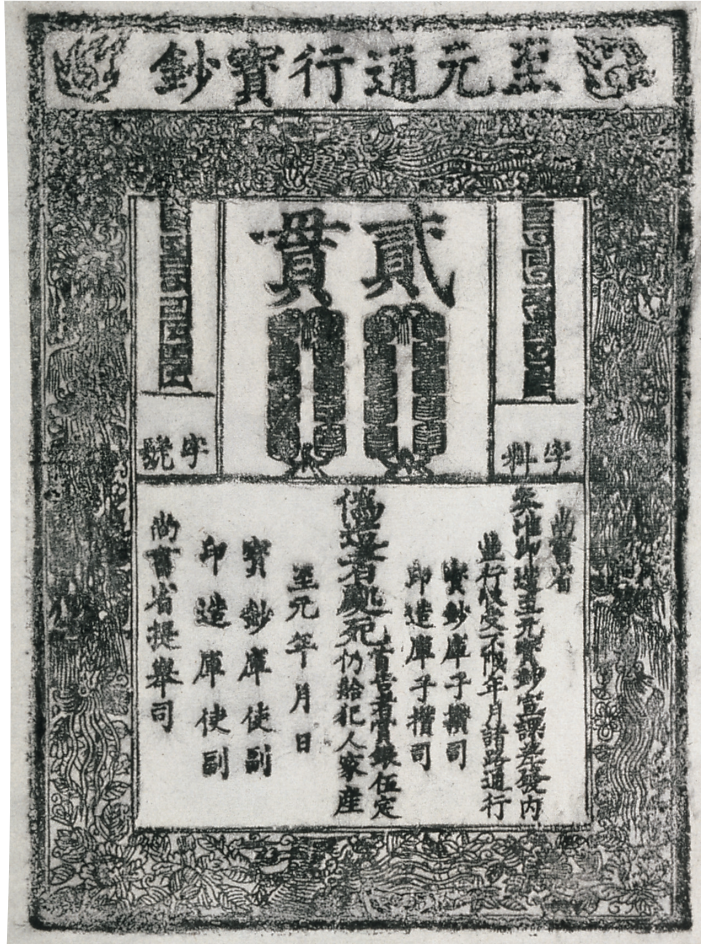 至元通行寶鈔
貳貫
字料
字號
尚書省
奏准印造至元寶鈔宣課差發內
並行收受不限年月諸路通行
寶鈔庫子攢司
印造庫子攢司
偽造者處死
首告者賞銀伍定
仍給犯人家產
至元年月日
寶鈔庫使副
印造庫使副
尚書省提舉司